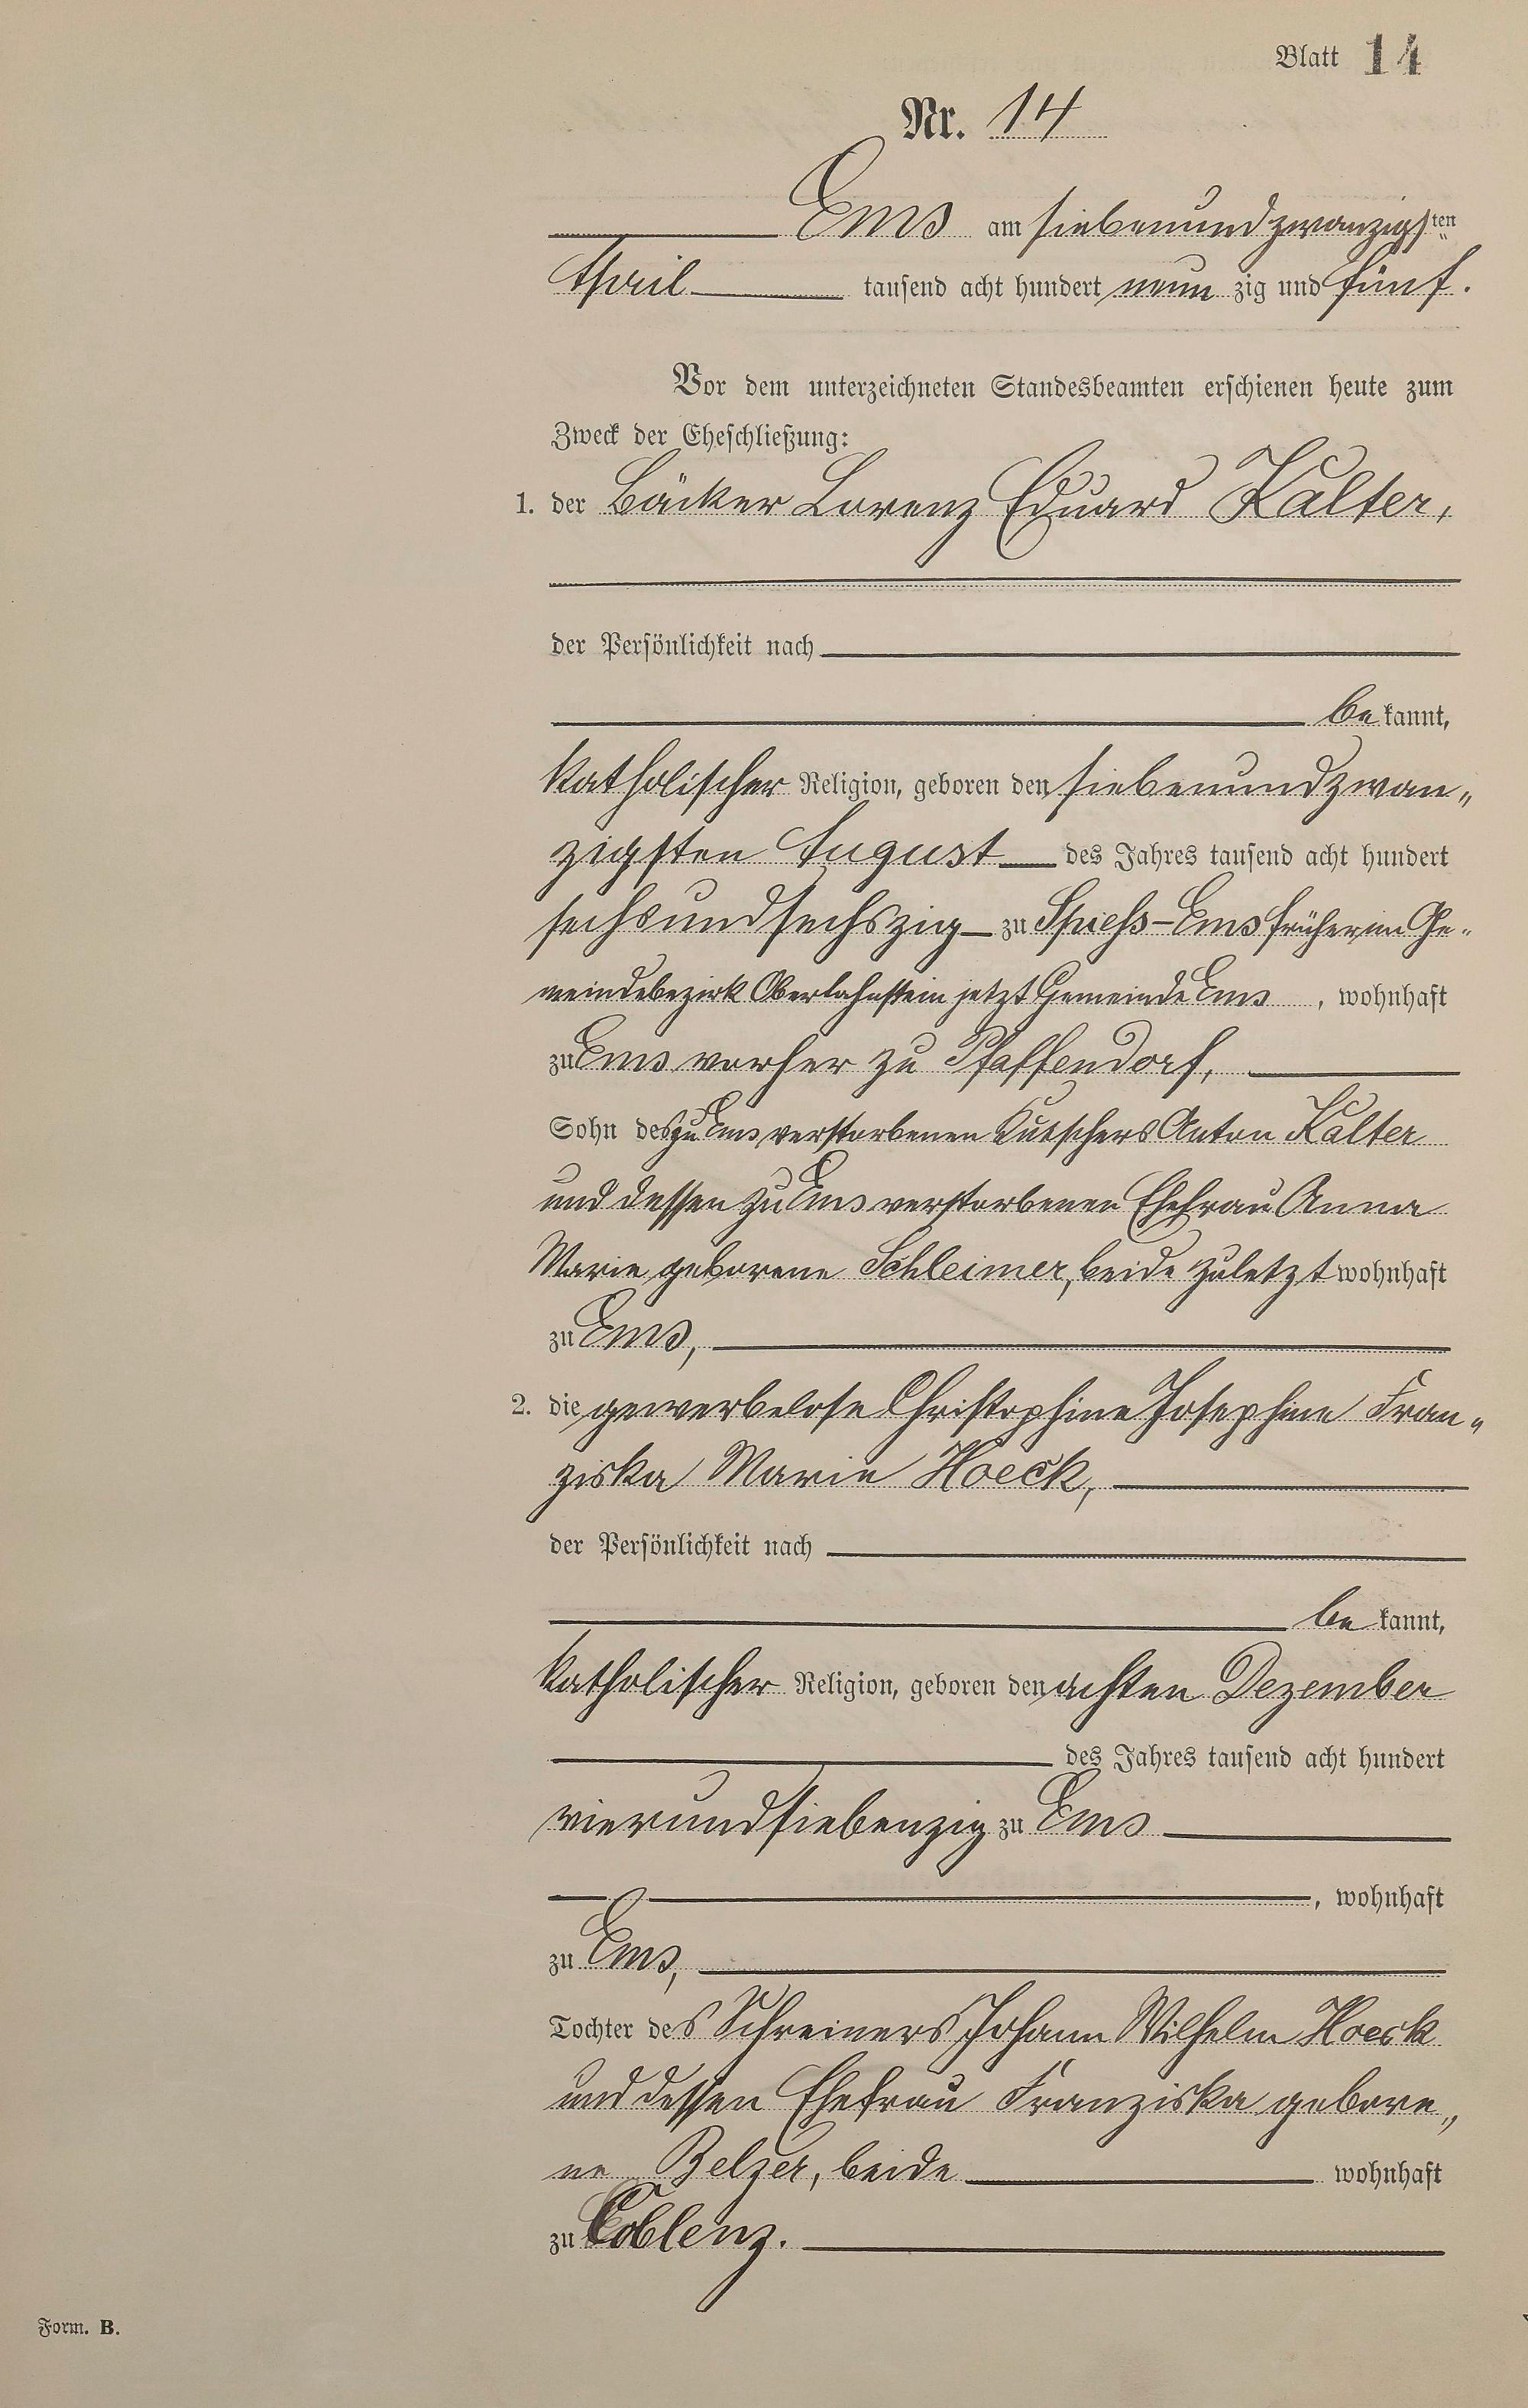 Blatt 14
Nr. 14
Ems am siebenundzwanzigsten
April tausend acht hundert neunzig und fünf.
Vor dem unterzeichneten Standesbeamten erschienen heute zum
Zweck der Eheschließung:
1. der Bäcker Lorenz Eduard Kalter,
der Persönlichkeit nach
bekannt,
katholischer Religion, geboren den siebenundzwan„
zigsten August des Jahres tausend acht hundert
sechsundsechszig zu Spiess-Ems früher im Ge„
meindebezirk Oberlahnstein jetzt Gemeinde Ems, wohnhaft
zu Ems vorher zu Pfaffendorf,
Sohn des zu Ems verstorbenen Kutschers Anton Kalter
und dessen zu Ems verstorbenen Ehefrau Anna
Marie geborene Schleimer, beide zuletzt wohnhaft
zu Ems,
2. die gewerbelose Christophine Josephine Fran„
ziska Marie Hoeck,
der Persönlichkeit nach
bekannt,
katholischer Religion, geboren den achten Dezember
des Jahres tausend acht hundert
vierundsiebenzig zu Ems
, wohnhaft
zu Ems,
Tochter des Schreiners Johann Wilhelm Hoeck
und dessen Ehefrau Franziska gebore„
ne Belzer, beide wohnhaft
zu Coblenz.
Form. B.